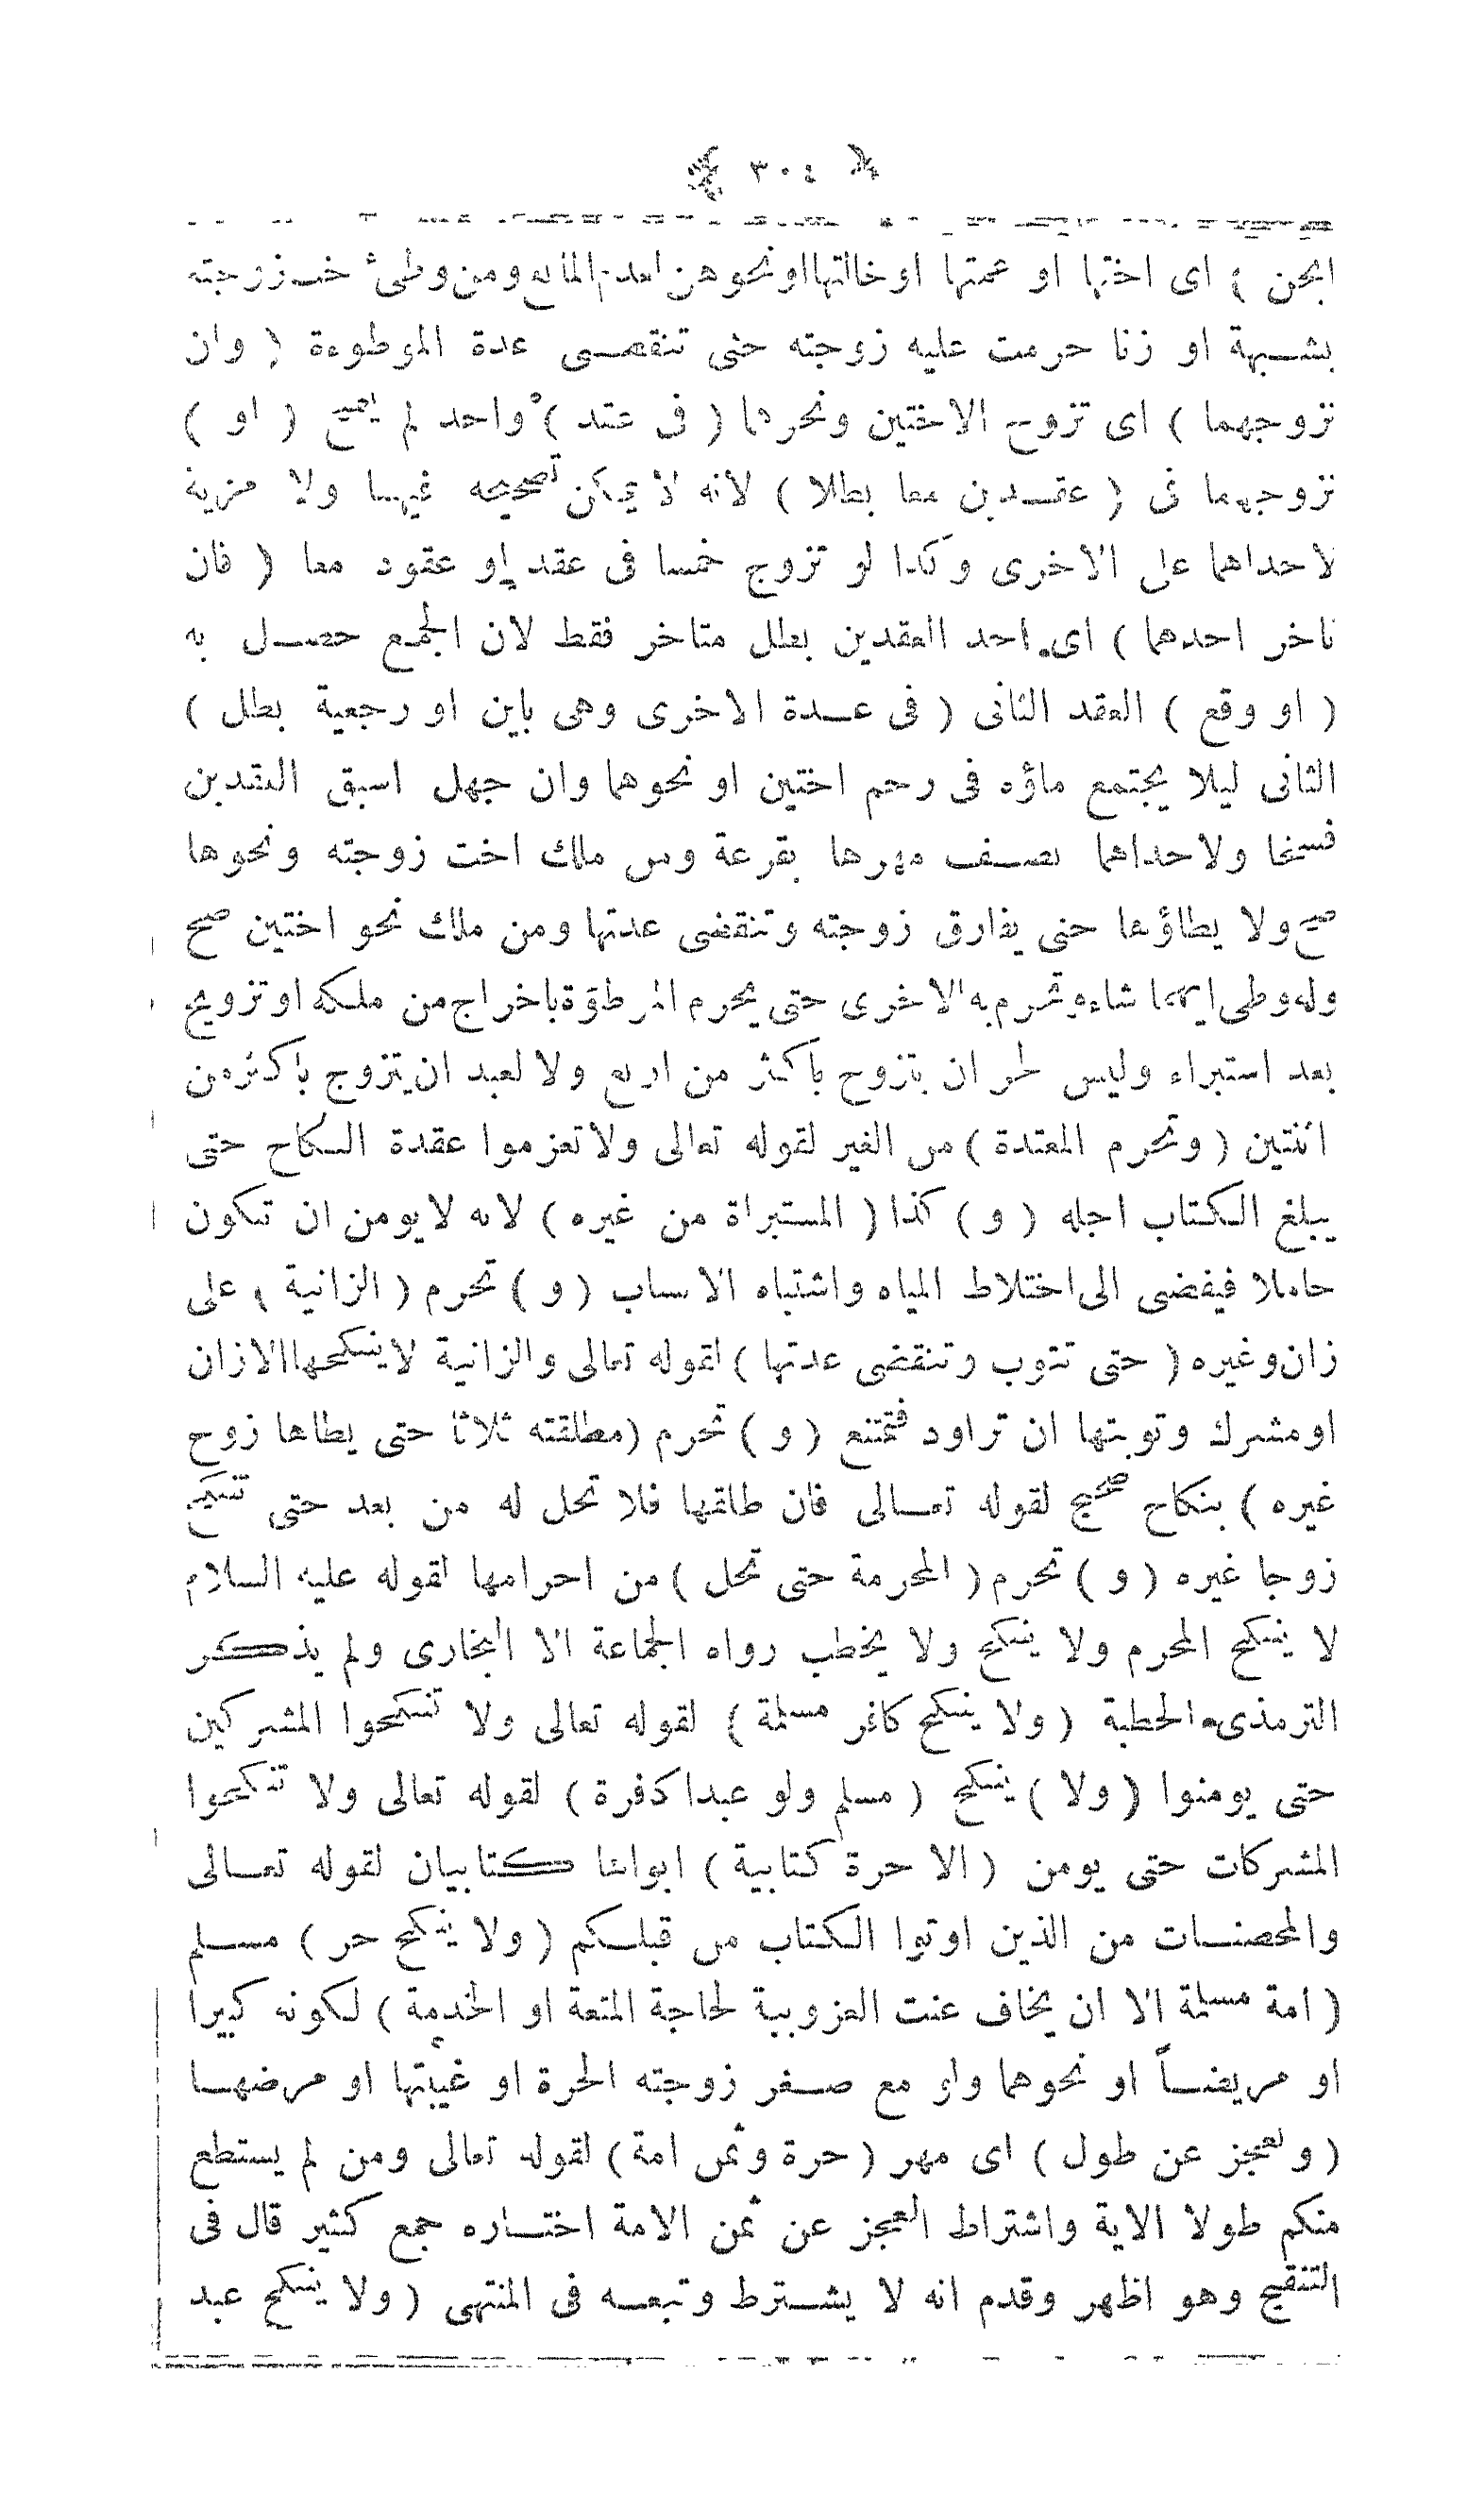 ﴿ ٣٠٤ ﴾
ابحن ) اى اختها او عمتها اوخالتها اونحوهن لعدم المانع ومن وطئ اخت زوجته
بشبهة او زنا حرمت عليه زوجته حتى تنقضى عدة الموطوءة ( وان
تزوجهما ) اى تزوج الاختين ونحوهما ( فى عقد ) واحد لم يصح ( او )
تزوجهما فى ( عقدين معا بطلا ) لانه لا يمكن تصحيحه فيهما ولا مزية
لاحداهما على الاخرى وكذا لو تزوج خمسا فى عقد او عقود معا ( فان
تاخر احدهما ) اى احد العقدين بطل متاخر فقط لان الجمع حصل به
( او وقع ) العقد الثانى ( فى عدة الاخرى وهى باين او رجعية بطل )
الثانى ليلا يجتمع ماؤه فى رحم اختين او نحوهما وان جهل اسبق العقدين
فسخا ولاحداهما نصف مهرها بقرعة ومن ملك اخت زوجته ونحوها
صح ولا يطاؤها حتى يفارق زوجته وتنقضى عدتها ومن ملك نحو اختين صح
وله وطى ايهما شاء وتحرم به الاخرى حتى يحرم الموطؤة باخراج من ملكه او تزويج
بعد استبراء وليس لحر ان يتزوج باكثر من اربع ولا لعبد ان يتزوج باكثر من
اثنتين ( وتحرم المعتدة ) من الغير لقوله تعالى ولا تعزموا عقدة النكاح حتى
يبلغ الكتاب اجله ( و ) كذا ( المستبراة من غيره ) لانه لا يومن ان تكون
حاملا فيفضى الى اختلاط المياه واشتباه الانساب ( و ) تحرم ( الزانية ) على
زان وغيره ( حتى تتوب وتنقضى عدتها ) لقوله تعالى والزانية لا ينكحها الا زان
او مشرك وتوبتها ان تراود فتمتنع ( و ) تحرم ( مطلقته ثلاثا حتى يطاها زوج
غيره ) بنكاح صحيح لقوله تعالى فان طلقها فلا تحل له من بعد حتى تنكح
زوجا غيره ( و ) تحرم ( المحرمة حتى تحل ) من احرامها لقوله عليه السلام
لا ينكح المحرم ولا ينكح ولا يخطب رواه الجماعة الا البخارى ولم يذكر
الترمذى الخطبة ( ولا ينكح كافر مسلمة ) لقوله تعالى ولا تنكحوا المشركين
حتى يومنوا ( ولا ) ينكح ( مسلم ولو عبدا كافرة ) لقوله تعالى ولا تنكحوا
المشركات حتى يومن ( الا حرة كتابية ) ابواها كتابيان لقوله تعالى
والمحصنات من الذين اوتوا الكتاب من قبلكم ( ولا ينكح حر ) مسلم
( امة مسلمة الا ان يخاف عنت العزوبية لحاجة المتعة او الخدمة ) لكونه كبيرا
او مريضاً او نحوهما ولو مع صغر زوجته الحرة او غيبتها او مرضها
( ولعجز عن طول ) اى مهر ( حرة وثمن امة ) لقوله تعالى ومن لم يستطع
منكم طولا الاية واشتراط العجز عن ثمن الامة اختاره جمع كثير قال فى
التنقيح وهو اظهر وقدم انه لا يشترط وتبعه فى المنتهى ( ولا ينكح عبد